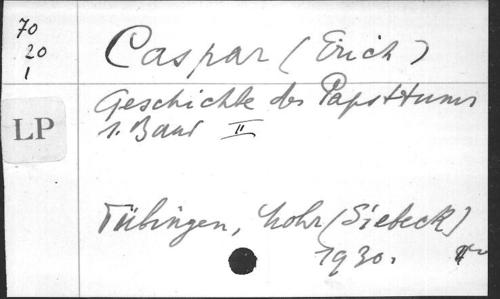 70
20
1
Caspar (Erich)
Geschichte des Papsttums
1. Band II
LP
Tübingen, Mohr (Siebeck)
1930.